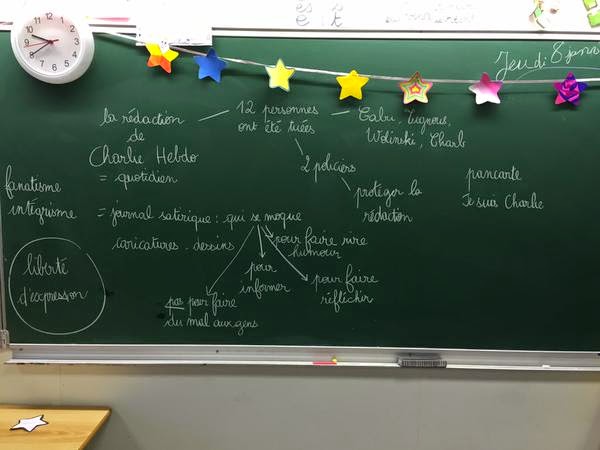 Jeudi 8 janv
la rédaction
de
Charlie Hebdo
= quotidien
12 personnes
ont été tuées
Cabu, Tignous,
Wolinski, Charb
2 policiers
protéger la
rédaction
pancarte
Je suis Charlie
fanatisme
intégrisme
= journal satirique : qui se moque
caricatures - dessins
pour faire rire
humour
pour
informer
pour faire
réfléchir
pas pour faire
du mal aux gens
liberté
d'expression